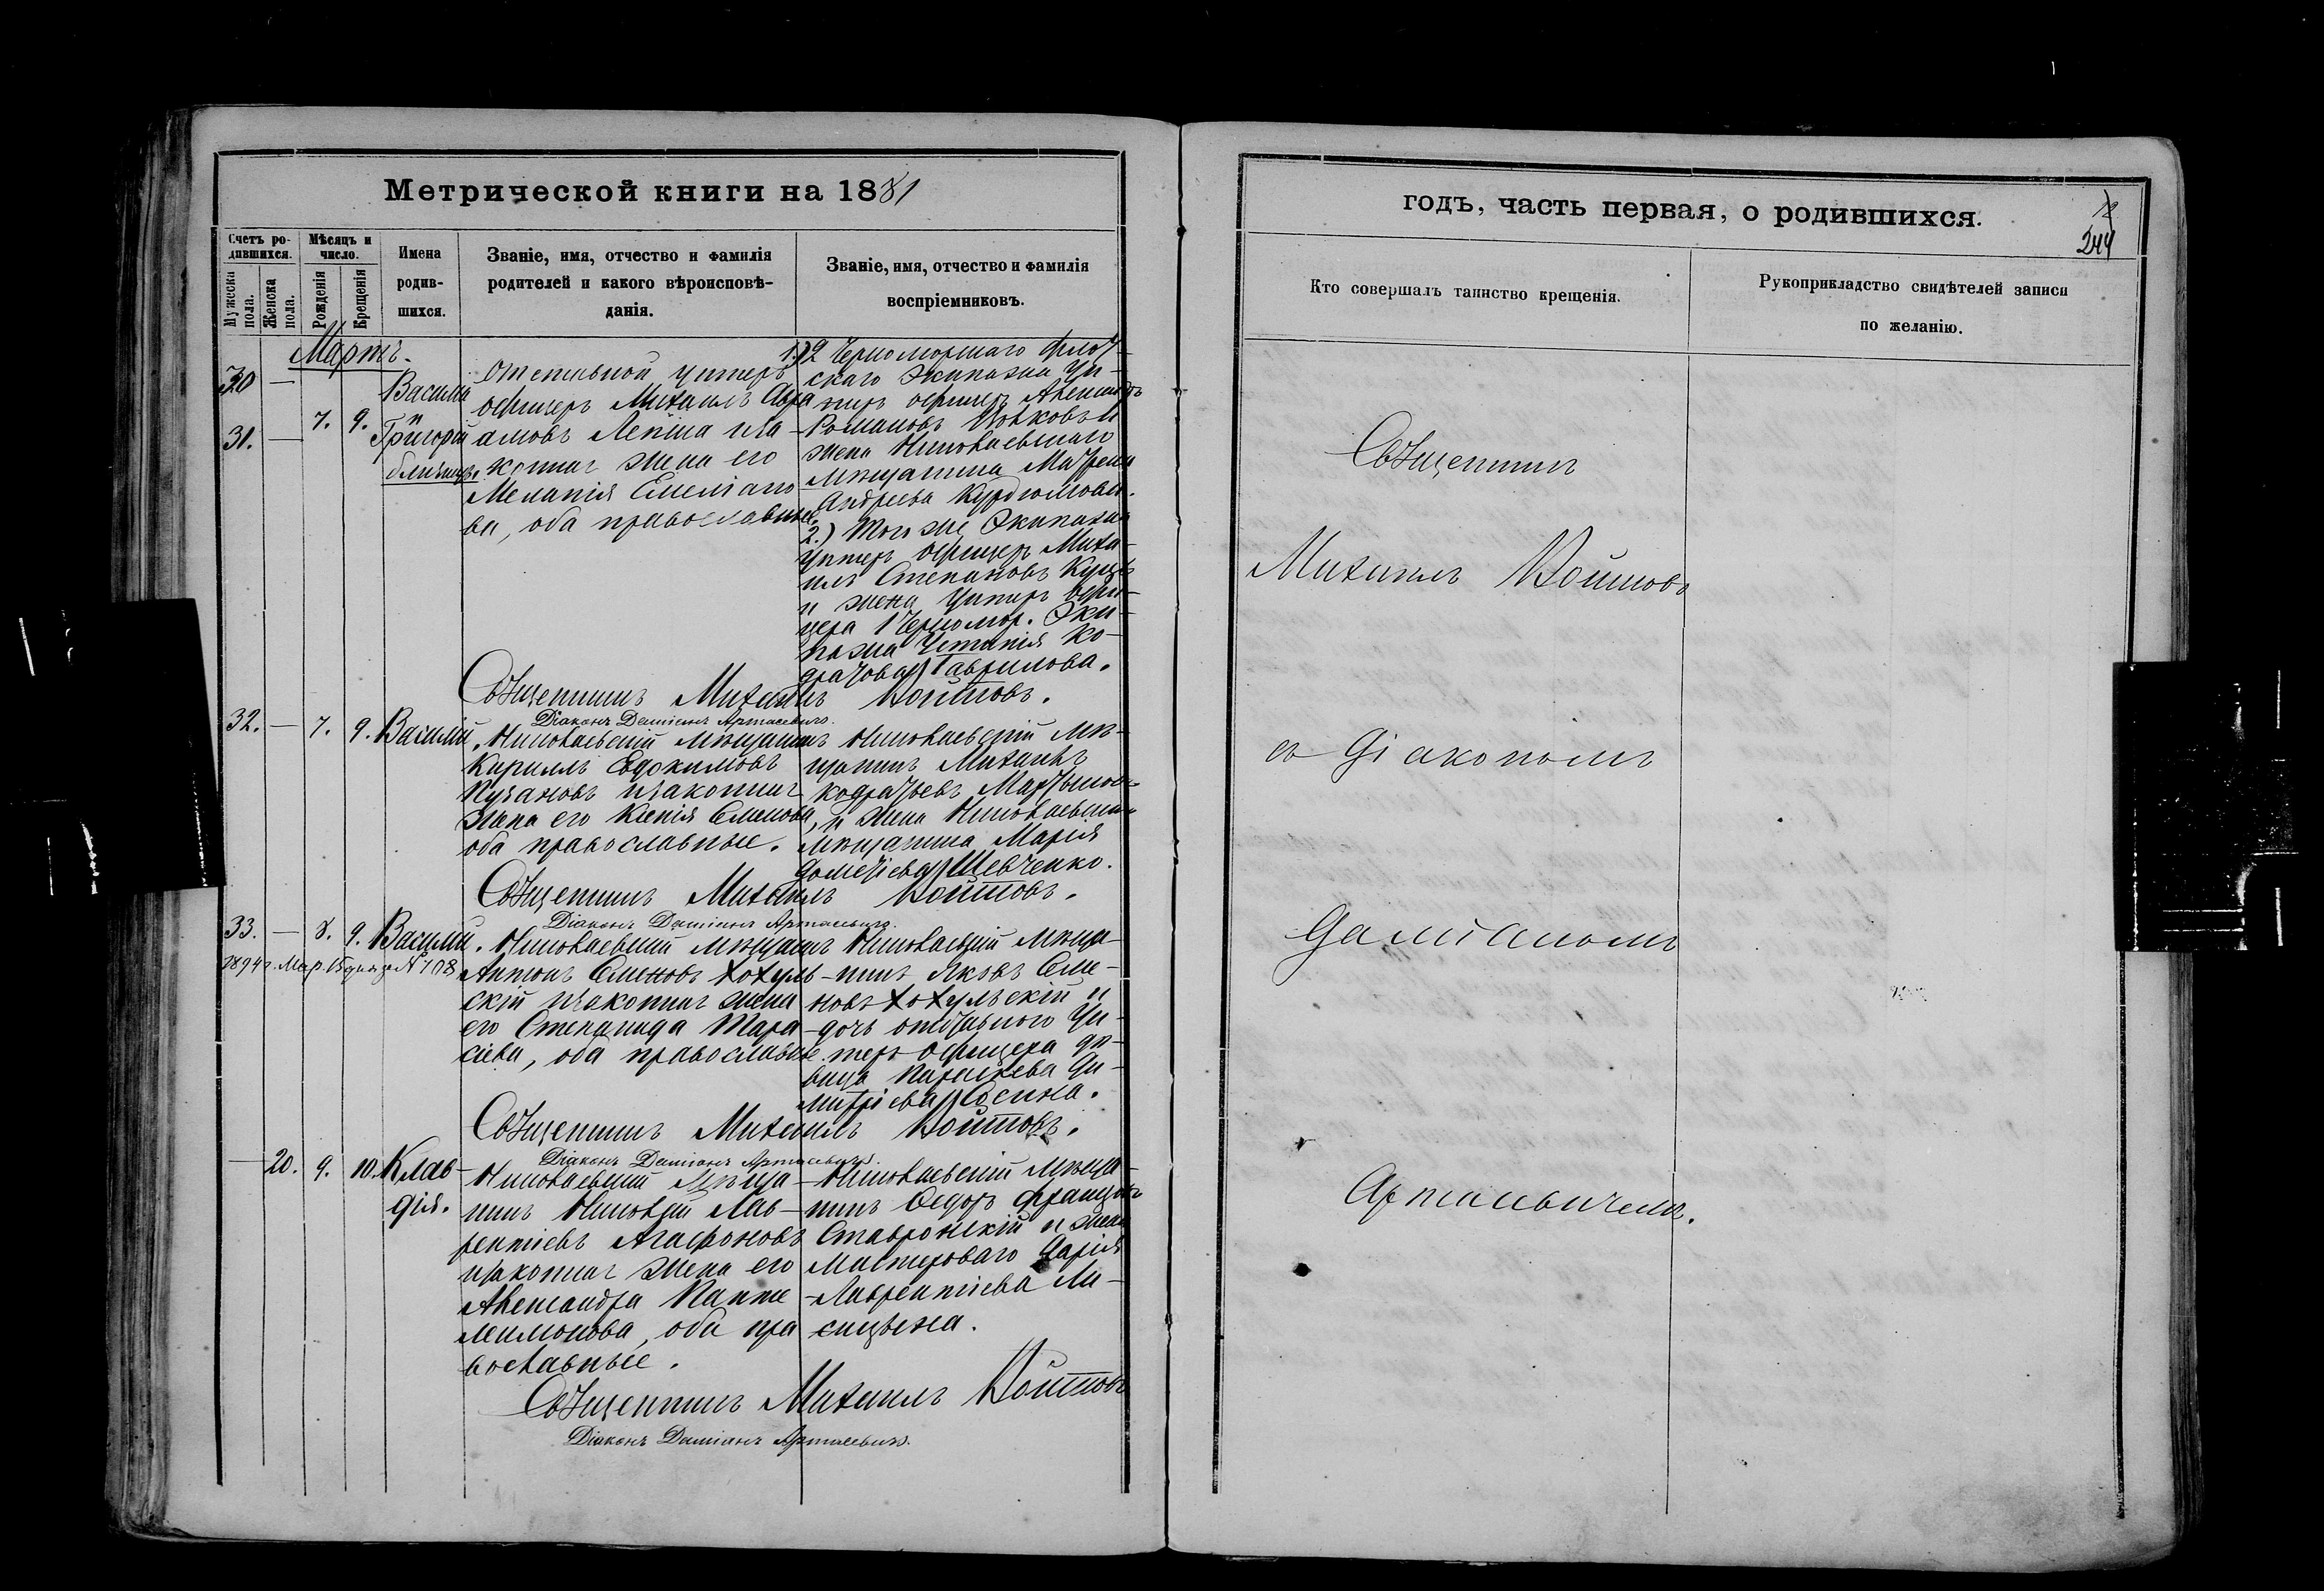 Метрической книги на 1881
Счетъ ро-
дившихся.
Мужеска пола.
Женска пола.
Мѣсяцъ и
число.
Рожденія
Крещенія
Имена
родив-
шихся.
Званіе, имя, отчество и фамилія
родителей и какого вѣроисповѣ-
данія.
Званіе, имя, отчество и фамилія
воспріемниковъ.
Мартъ.
30 —
31. —
7. 9.
Василій
и
Григорій
близнецы
Отставной унтеръ
офицеръ Михаилъ Авра
амовъ Лепша и за-
коннаг жена его
Меланія Емеліано
ва, оба православные.
1.) 2 Черноморшаго флот-
скаго Экипажа Ун-
тиръ офицеръ Александръ
Романовъ и
жена Николаевшаго
мѣщанина Матрена
Андреева Курдюмова.
2.) Того же Экипажа
Унтеръ офицеръ Миха-
илъ Степановъ
и жена Унтеръ офи-
цера 1 Черномор. Эки-
пажа Ко-
дратова Гаврилова.
Священникъ Михаилъ Войтовъ.
Діаконъ Даміанъ Артасевичъ.
32. — 7. 9. Василій.
Николаевскій мѣщанинъ
Кирилъ Евдокимовъ
Пугановъ и законнаг
жена его Ксенія Семенова,
оба православные.
Николаевскій мѣ-
щанинъ Михаилъ
Кодратьевъ Мартынов
и жена Николаевшаго
мѣщанина Марія
Дометіева Шевченко.
Священникъ Михаилъ Войтовъ.
Діаконъ Даміанъ Артасевичъ.
33. — 8. 9. Василій.
1894 г. Мар. 15 дня № 108
Николаевскій мѣщанинъ
Антонъ Семеновъ Хохуль-
скій и законнаг жена
его Степанида Тара-
сіева, оба православные.
Николаевскій мѣща-
нинъ Яковъ Семе-
новъ Хохульскій и
дочь отставного Ун-
теръ офицера дѣ-
вица Параскева Ди-
митріева Сосина.
Священникъ Михаилъ Войтовъ.
Діаконъ Даміанъ Артасевичъ.
— 20. 9. 10. Клав-
дія.
Николаевскій мѣща-
нинъ Николай Лав-
рентіевъ Агафоновъ
и законнаг жена его
Александра Панте
леимонова, оба пра
вославные.
Николаевскій мѣща-
нинъ Ѳедоръ Францовъ
Ставронскій и жена
Мастероваго Дарія
Лаврентіева Ли-
сицына.
Священникъ Михаилъ Войтовъ
Діаконъ Даміанъ Артасевичъ.
годъ, часть первая, о родившихся.
12
244
Кто совершалъ таинство крещенія.
Рукоприкладство свидѣтелей записи
по желанію.
Священникъ
Михаилъ Войтовъ
съ Діакономъ
Даміаномъ
Артасевичемъ.